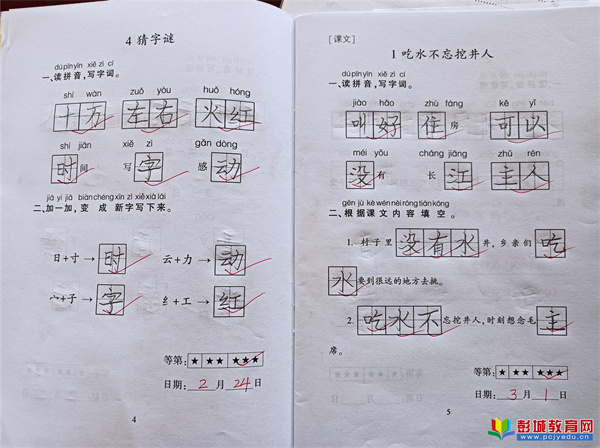 4 猜字谜
dú pīn yīn xiě zì cí
一、读拼音,写字词。
shí wàn zuǒ yòu huǒ hóng
十万 左右 火红
shí jiān xiě zì gǎn dòng
时间 写字 感动
jiā yi jiā biàn chéng xīn zì xiě xià lái
二、加一加,变成新字写下来。
日+寸→时 云+力→动
宀+子→字 纟+工→红
等第: ★ ★★ ★★★
日期: 2 月 24 日
4
[课文]
1 吃水不忘挖井人
dú pīn yīn xiě zì cí
一、读拼音,写字词。
jiào hǎo zhù fáng kě yǐ
叫好 住房 可以
méi yǒu cháng jiāng zhǔ rén
没有 长江 主人
gēn jù kè wén nèi róng tián kòng
二、根据课文内容填空。
1. 村子里没有水井,乡亲们吃
水要到很远的地方去挑。
2. 吃水不忘挖井人,时刻想念毛主
席。
等第: ★ ★★ ★★★
日期: 3 月 1 日
5
彭城教育网
www.pcjyedu.cn